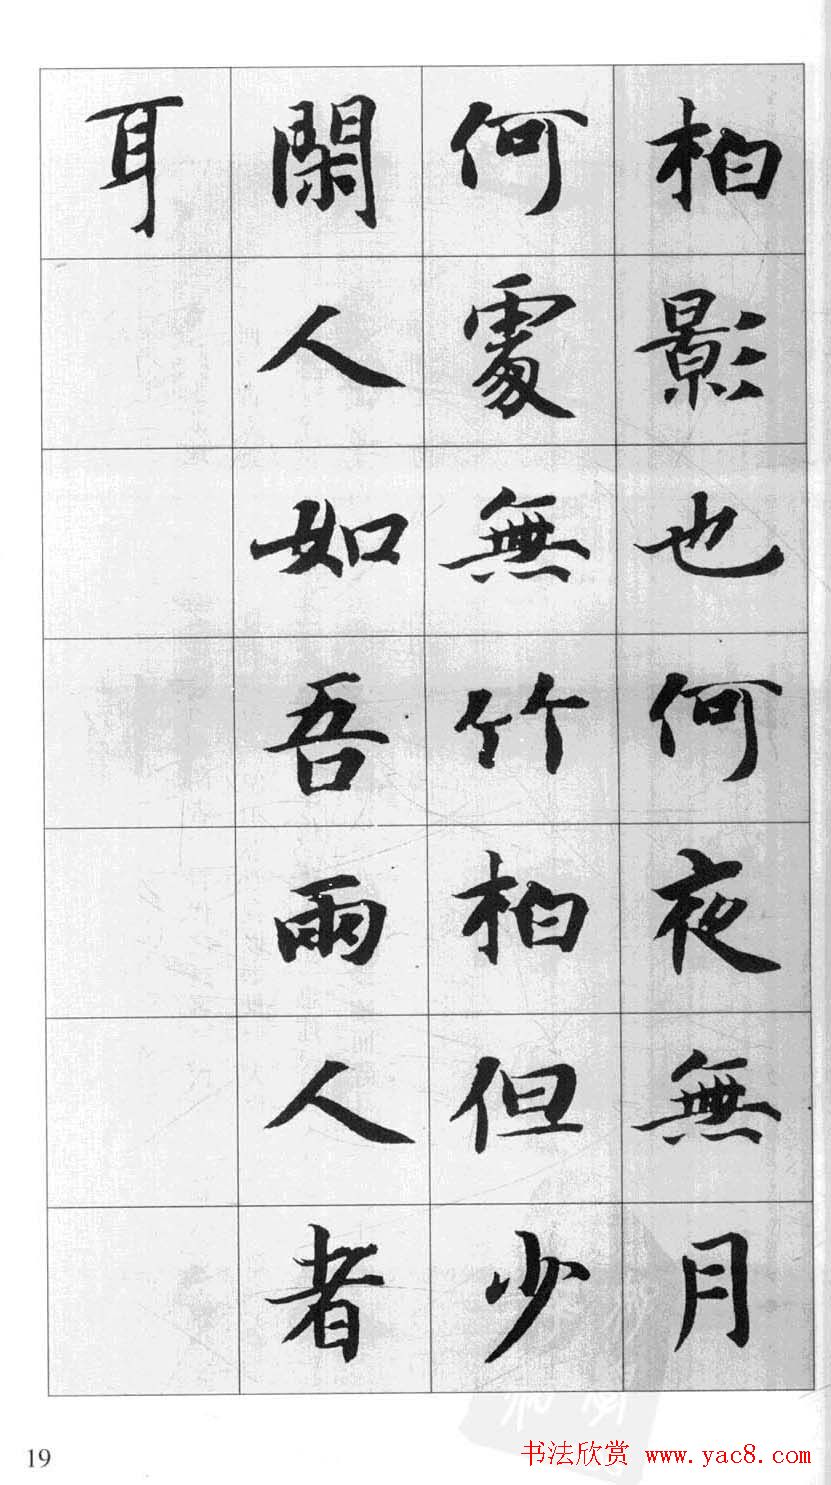 柏影也何夜無月
何處無竹柏但少
閑人如吾兩人者
耳
19
书法欣赏 www.yac8.com